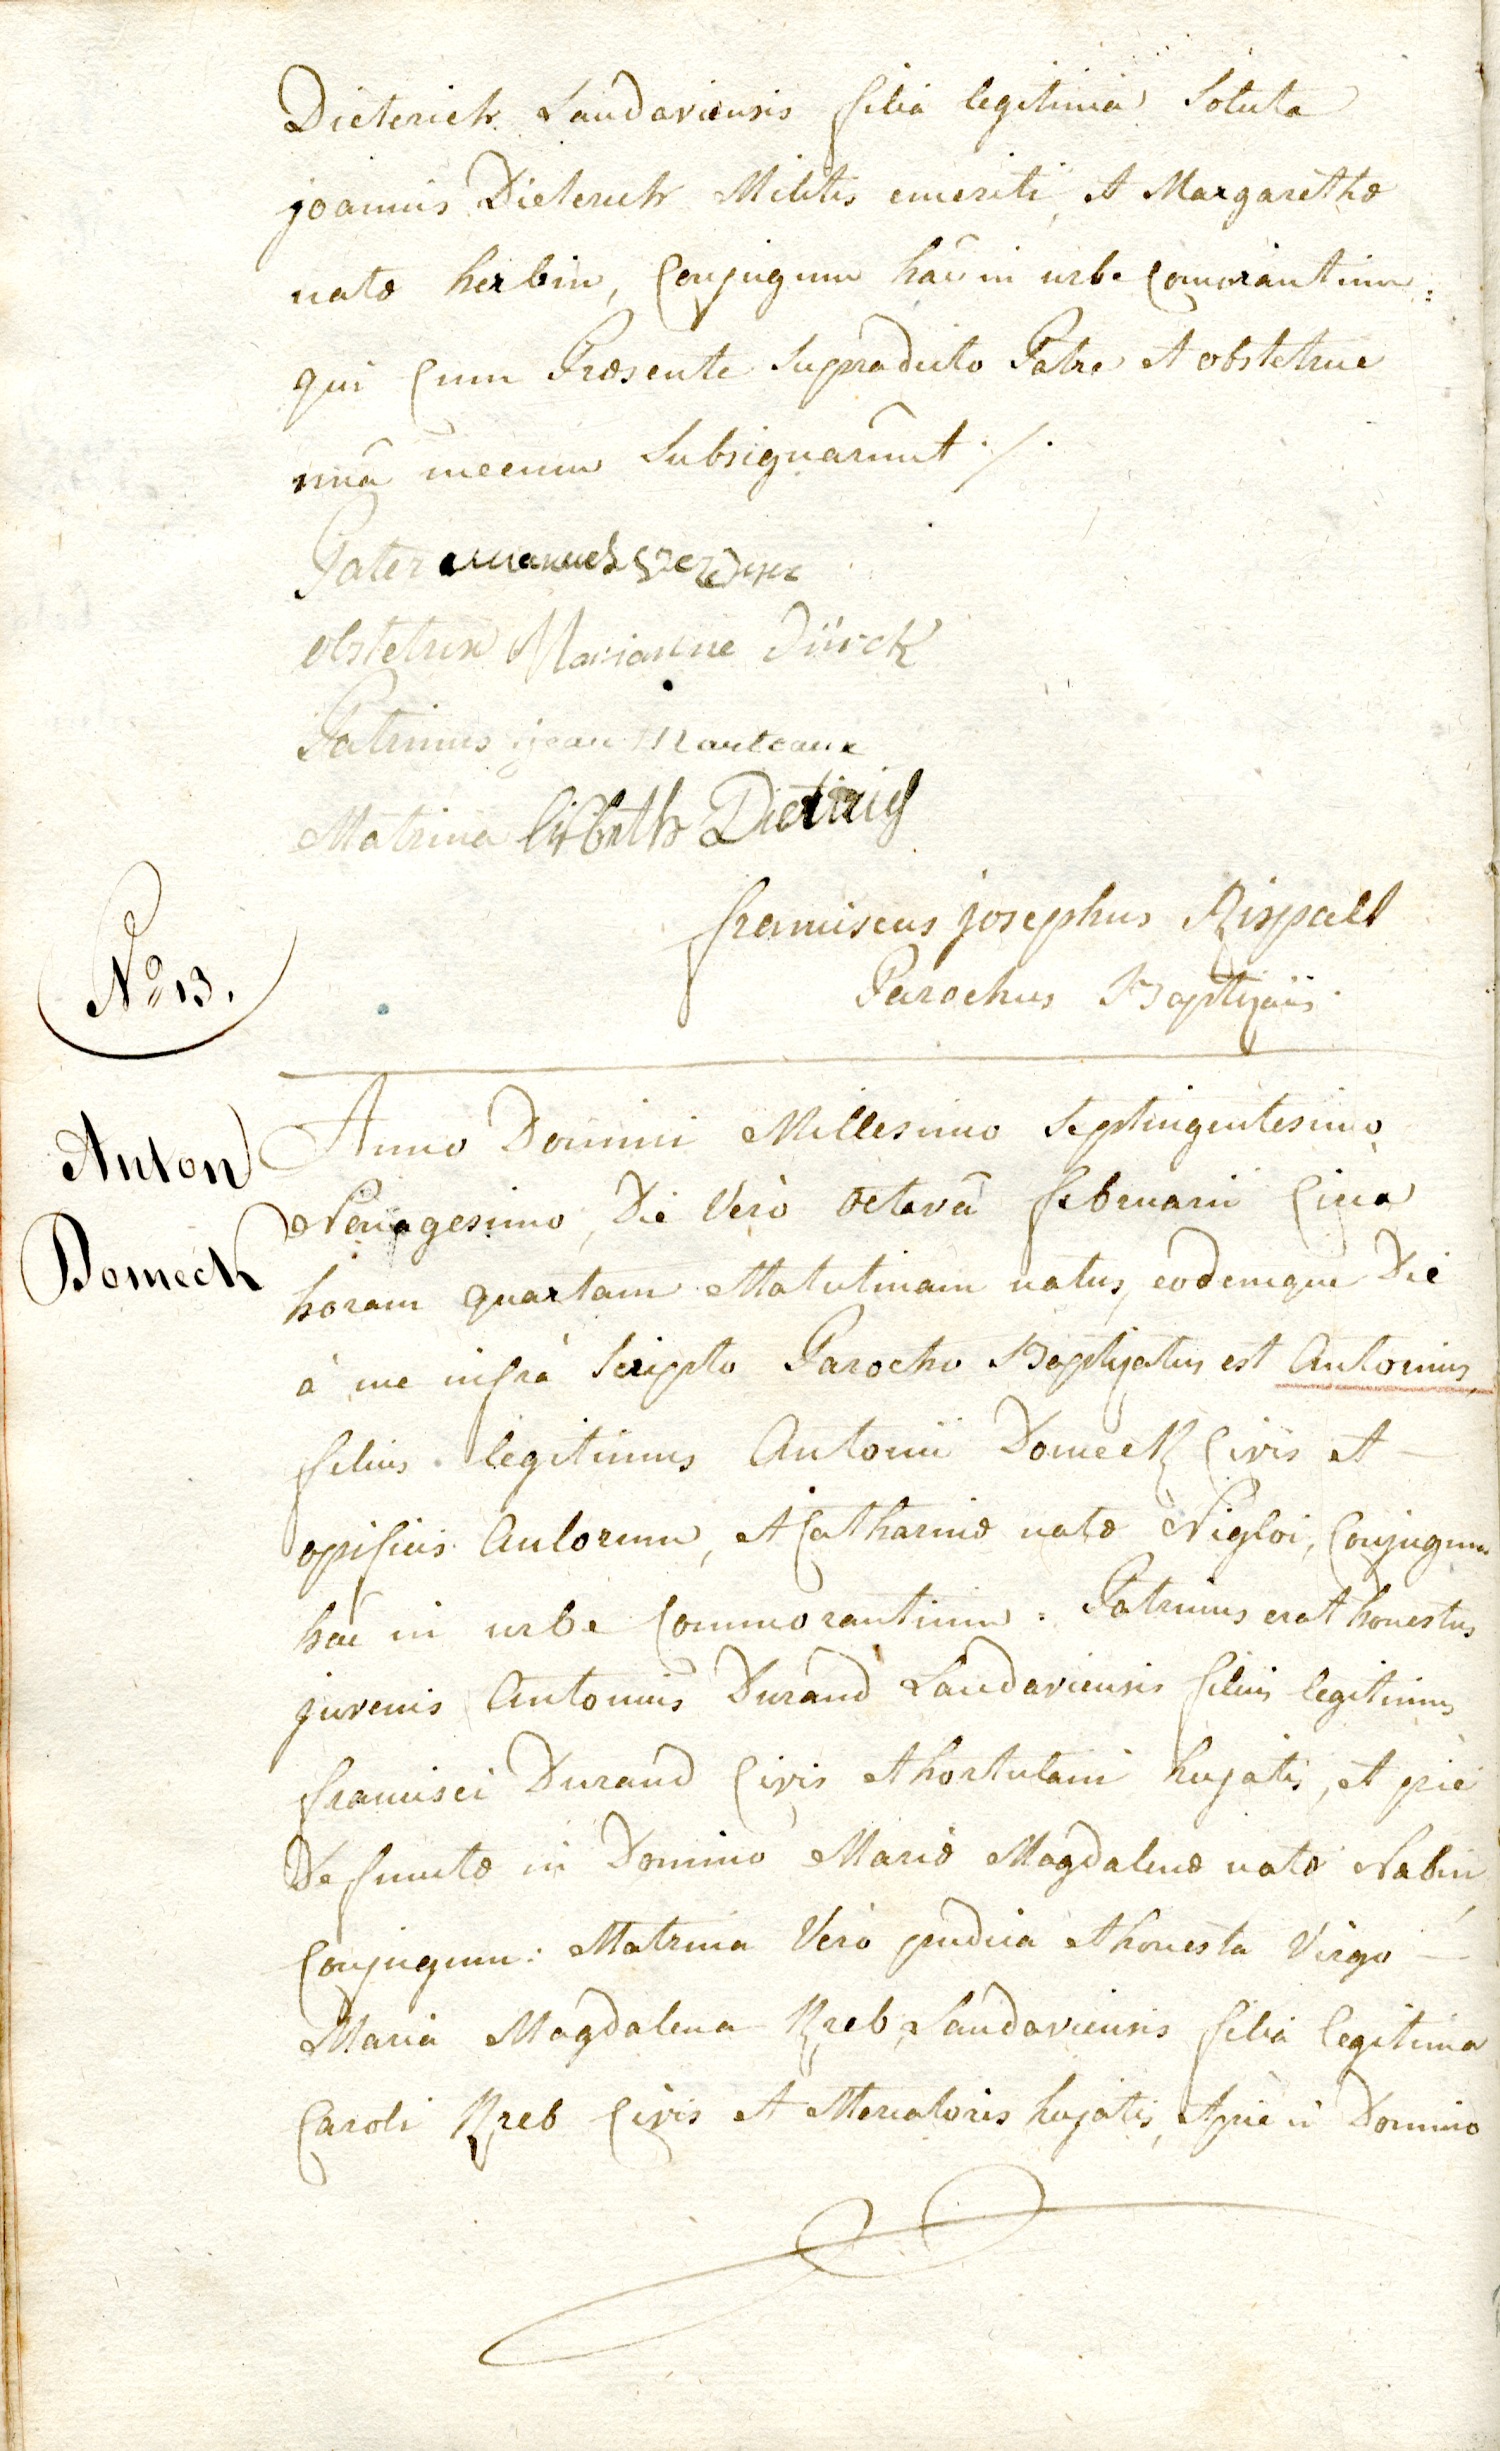 Dieterich Landaviensis filia legitima Soluta
joannis Dieterich Militis emeriti, et Margarethæ
natæ herbin, Conjugum hâc in urbe Comorantium:
qui Cum Præsente Supradicto Patre et obstetrice
unâ mecum Subsignarunt ./.
Pater
obstetrix Marianne Dürck
Patrinus jean Marteaux
Matrina lisbeth Dietrich
franciscus josephus Rispalt
Parochus Baptizans.
Nº 13.
Anton
Domeck
Anno Domini Millesimo Septingentesimo
Nonagesimo, Die Verò octavâ februarii Circa
horam quartam Matutinam natus, eodemque Die
à me infrà Scripto Parocho Baptizatus est Antonius,
filius legitimus Antonii Domeck Civis et
opificis Aulorum, et Catharinæ natæ Nigloi, Conjugum
hâc in urbe Commorantium. Patrinus erat honestus
juvenis Antonius Durand Landaviensis filius legitimus
francisci Durand Civis et hortulani hujatis, et piè
Defunctæ in Domino Mariæ Magdalenæ natæ Nabin,
Conjugum: Matrina Verò pudica et honesta Virgo
Maria Magdalena Kreb, Landaviensis filia legitima
Caroli Kreb Civis et Mercatoris hujatis, et piè in Domino